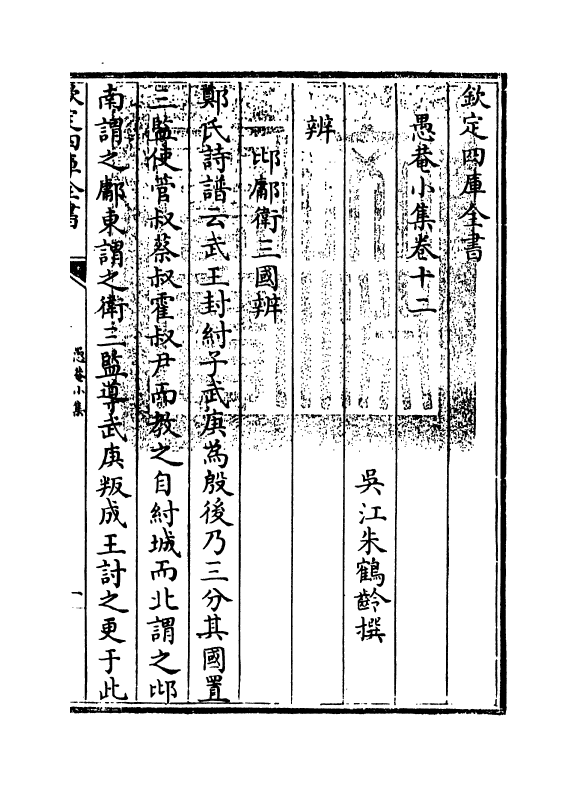 欽定四庫全書
愚菴小集卷十二
吳江朱鶴齡撰
辨
邶鄘衛三國辨
鄭氏詩譜云武王封紂子武庚為殷後乃三分其國置
三監使管叔蔡叔霍叔尹而教之自紂城而北謂之邶
南謂之鄘東謂之衛三監導武庚叛成王討之更于此
欽定四庫全書
愚菴小集
一